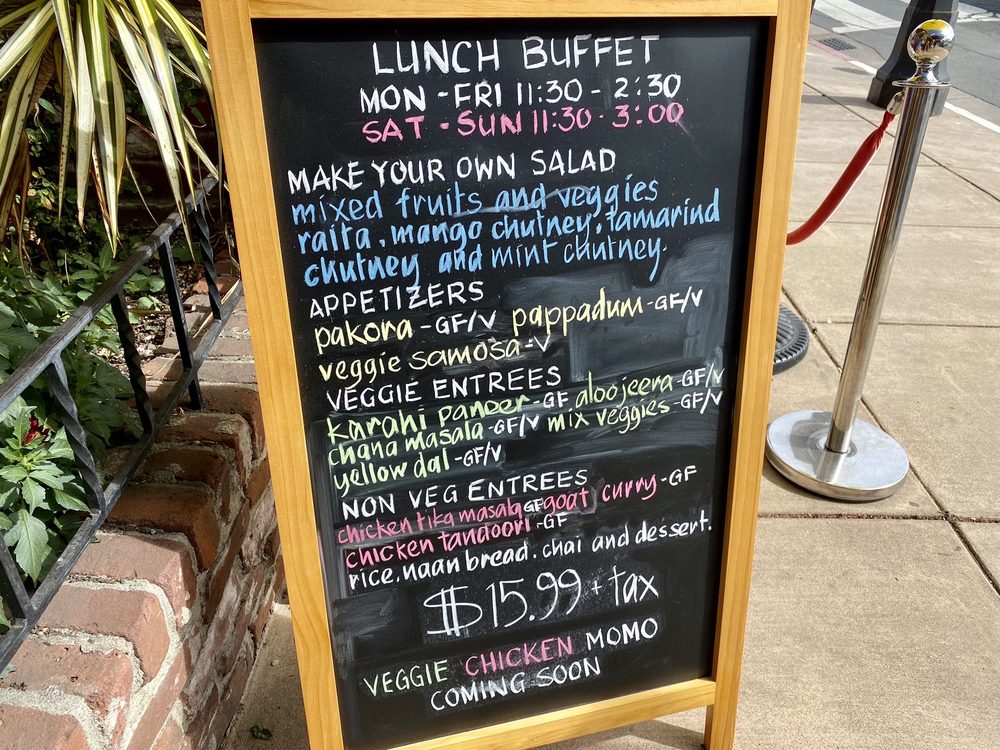 LUNCH BUFFET
MON - FRI 11:30 - 2:30
SAT - SUN 11:30 - 3:00
MAKE YOUR OWN SALAD
mixed fruits and veggies
raita, mango chutney, tamarind
chutney and mint chutney.
APPETIZERS
pakora - GF/V pappadum - GF/V
veggie samosa - V
VEGGIE ENTREES
karahi paneer - GF aloo jeera - GF/V
chana masala - GF/V mix veggies - GF/V
yellow dal - GF/V
NON VEG ENTREES
chicken tika masala GF goat curry - GF
chicken tandoori - GF
rice, naan bread, chai and dessert.
$15.99 + tax
VEGGIE CHICKEN MOMO
COMING SOON